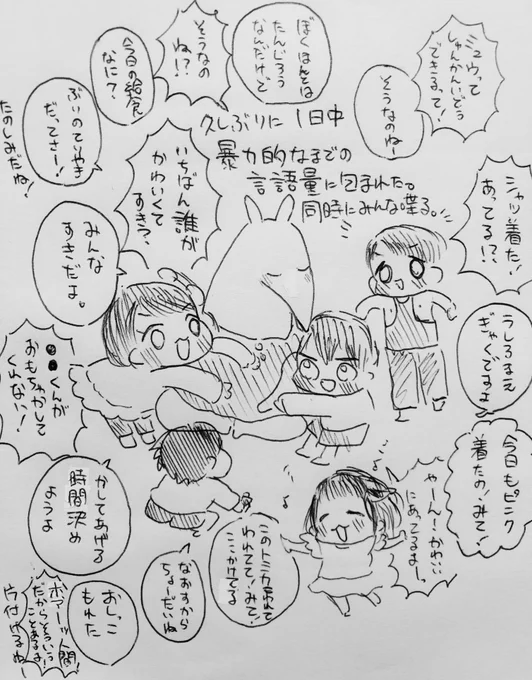 ミュウって
しゅんかんいどう
できるって!
そうなのねー
ぼくほんとは
たんじろう
なんだけど
そうなの
ね!?
今日の給食
なに?
ぶりのてりやき
だってさー!
たのしみだね!
久しぶりに1日中
暴力的なまでの
言語量に包まれた。
同時にみんな喋る。
いちばん誰が
かわいくて
すき?
みんな
すきだよ。
シャツ着た!
あってる!?
うしろまえ
ぎゃくですよ
今日もピンク
着たの!みて!
やーん!かわいい
にあってるよーっ
くんが
おもちゃかして
くれない!
かしてあげる
時間決め
ようよ
このトミカ
われてて!みて!
ここかけてる
なおすから
ちょーだいね
おしっこ
もれた
人間
だからそういう
ことあるよ!
片付けるねー